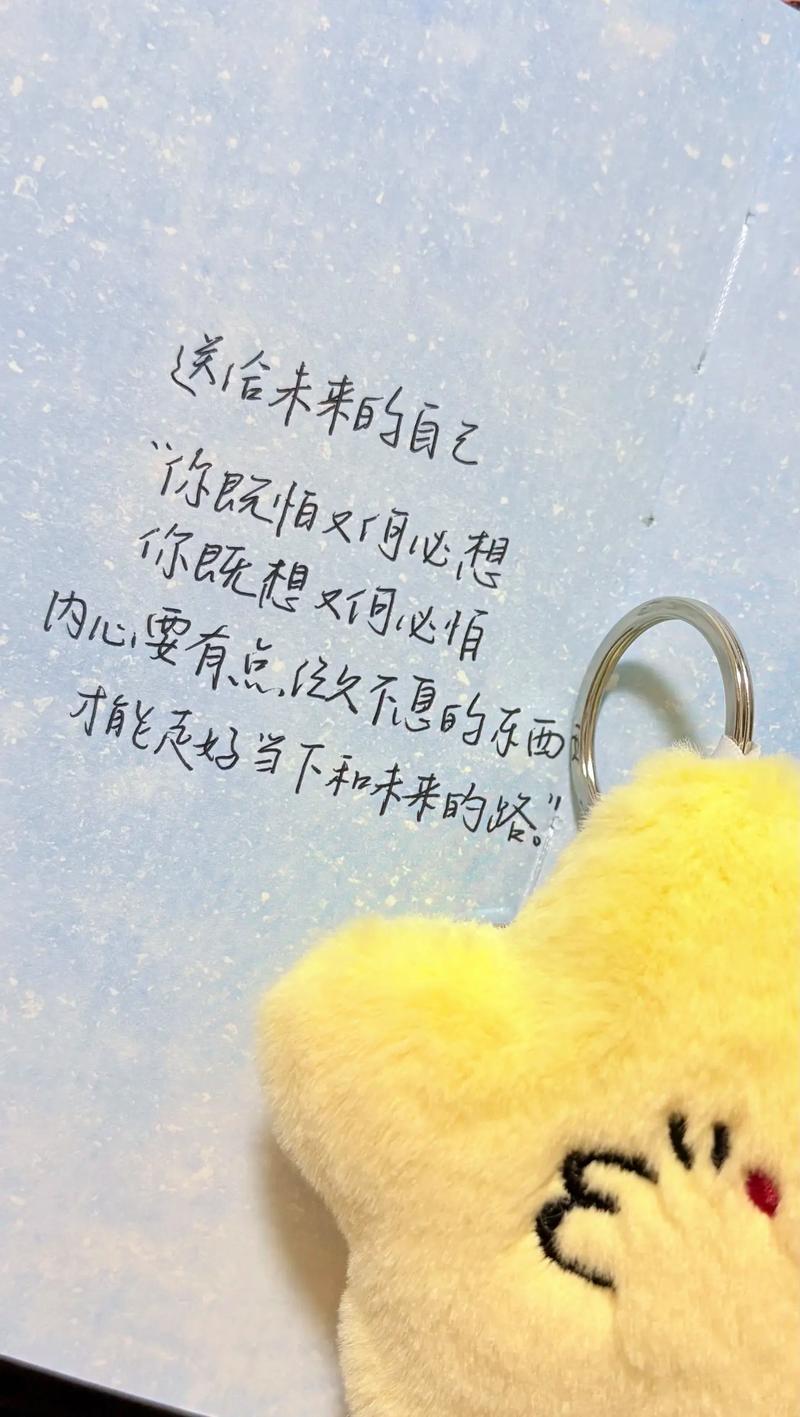 送给未来的自己
“你既怕又何必想
你既想又何必怕
内心要有点经久不息的东西
才能走好当下和未来的路。”